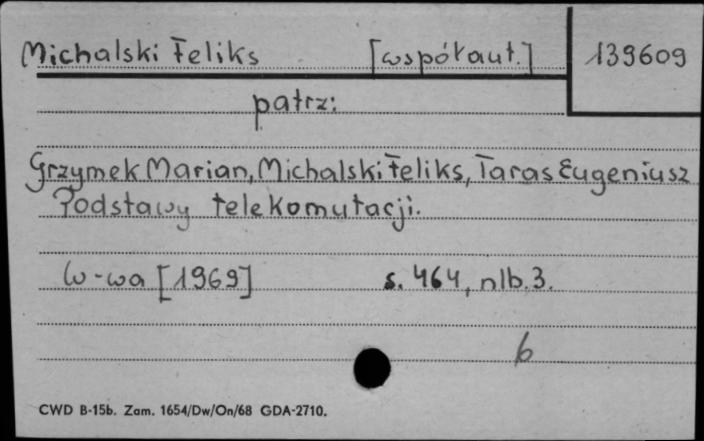 Michalski Feliks [współaut.] 139609
patrz:
Grzymek Marian, Michalski Feliks, Taras Eugeniusz
Podstawy telekomutacji.
W-wa [1969] s. 464, nlb. 3.
b
CWD B-15b. Zam. 1654/Dw/On/68 GDA-2710.